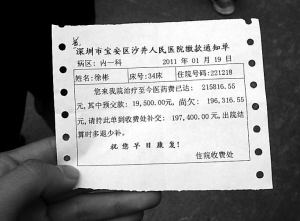 深圳市宝安区沙井人民医院缴款通知单
病区：内一科 2011 年 01 月 19 日
姓名：徐彬 床号：34床 住院号码：221218
您来我院治疗至今医药费已达： 215816.55
元,其中预交款： 19,500.00元， 尚欠： 196,316.55
元,请持此单到收费处补交： 197,400.00 元,出院结
算时多退少补。
祝您早日康复！
住院收费处